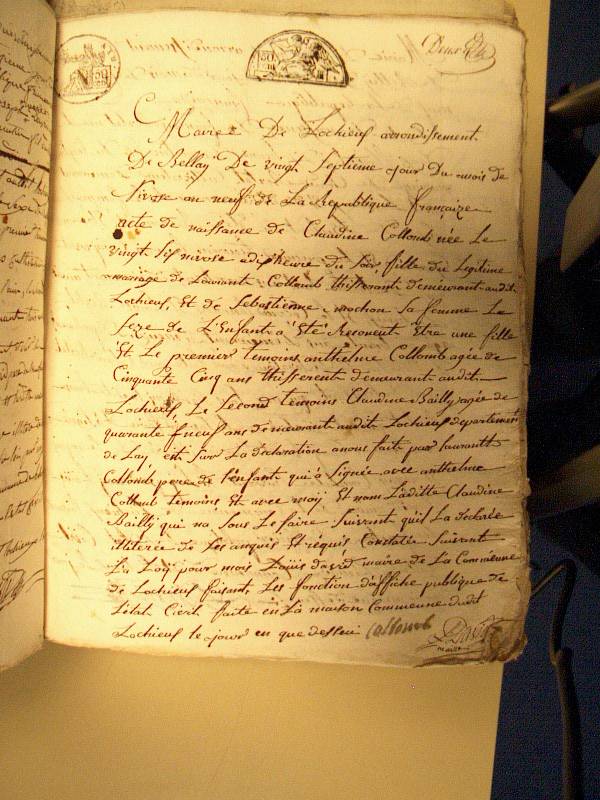 Deux
Mairie De Lochieuf arrondissement
De Bellay De vingt Septième jour Du mois de
Nivose an neuf de La République françaize
acte de naissance de Claudine Collomb née Le
vingt Sis nivose a dis heure du Soir fille du Légitime
mariage de Laurant Collomb thisserant demeurant audit
Lochieuf, Et de Sebastienne mochon Sa femme Le
Sexe de L'Enfant a Eté Reconeut Etre une fille
Et Le premier temoins anthelme Collomb agée de
Cinquante Cinq ans thisserent demeurant audit
Lochieuf, Le Second temoins Claudine Bailly agée de
quarante Eneuf ans demeurant audit Lochieuf departement
de Lay est Sur La declaration anous fait par Laurantt
Collomb pere de l'enfant qui à Signée avec anthelme
Collomb temoins Et avec moy Et nom Laditte Claudine
Bailly qui na Sous Le faire Suivant quil La declarée
illiterée de Les anquis Et requis Constatée Suivant
La Loÿ pour mois David maire de La Commeunne
de Lochieuf faisant Les fonction daffiche publique de
Létat Civil faite en La maison Commeunne dudit
Lochieuf le jour en que dessus Collomb David
maire